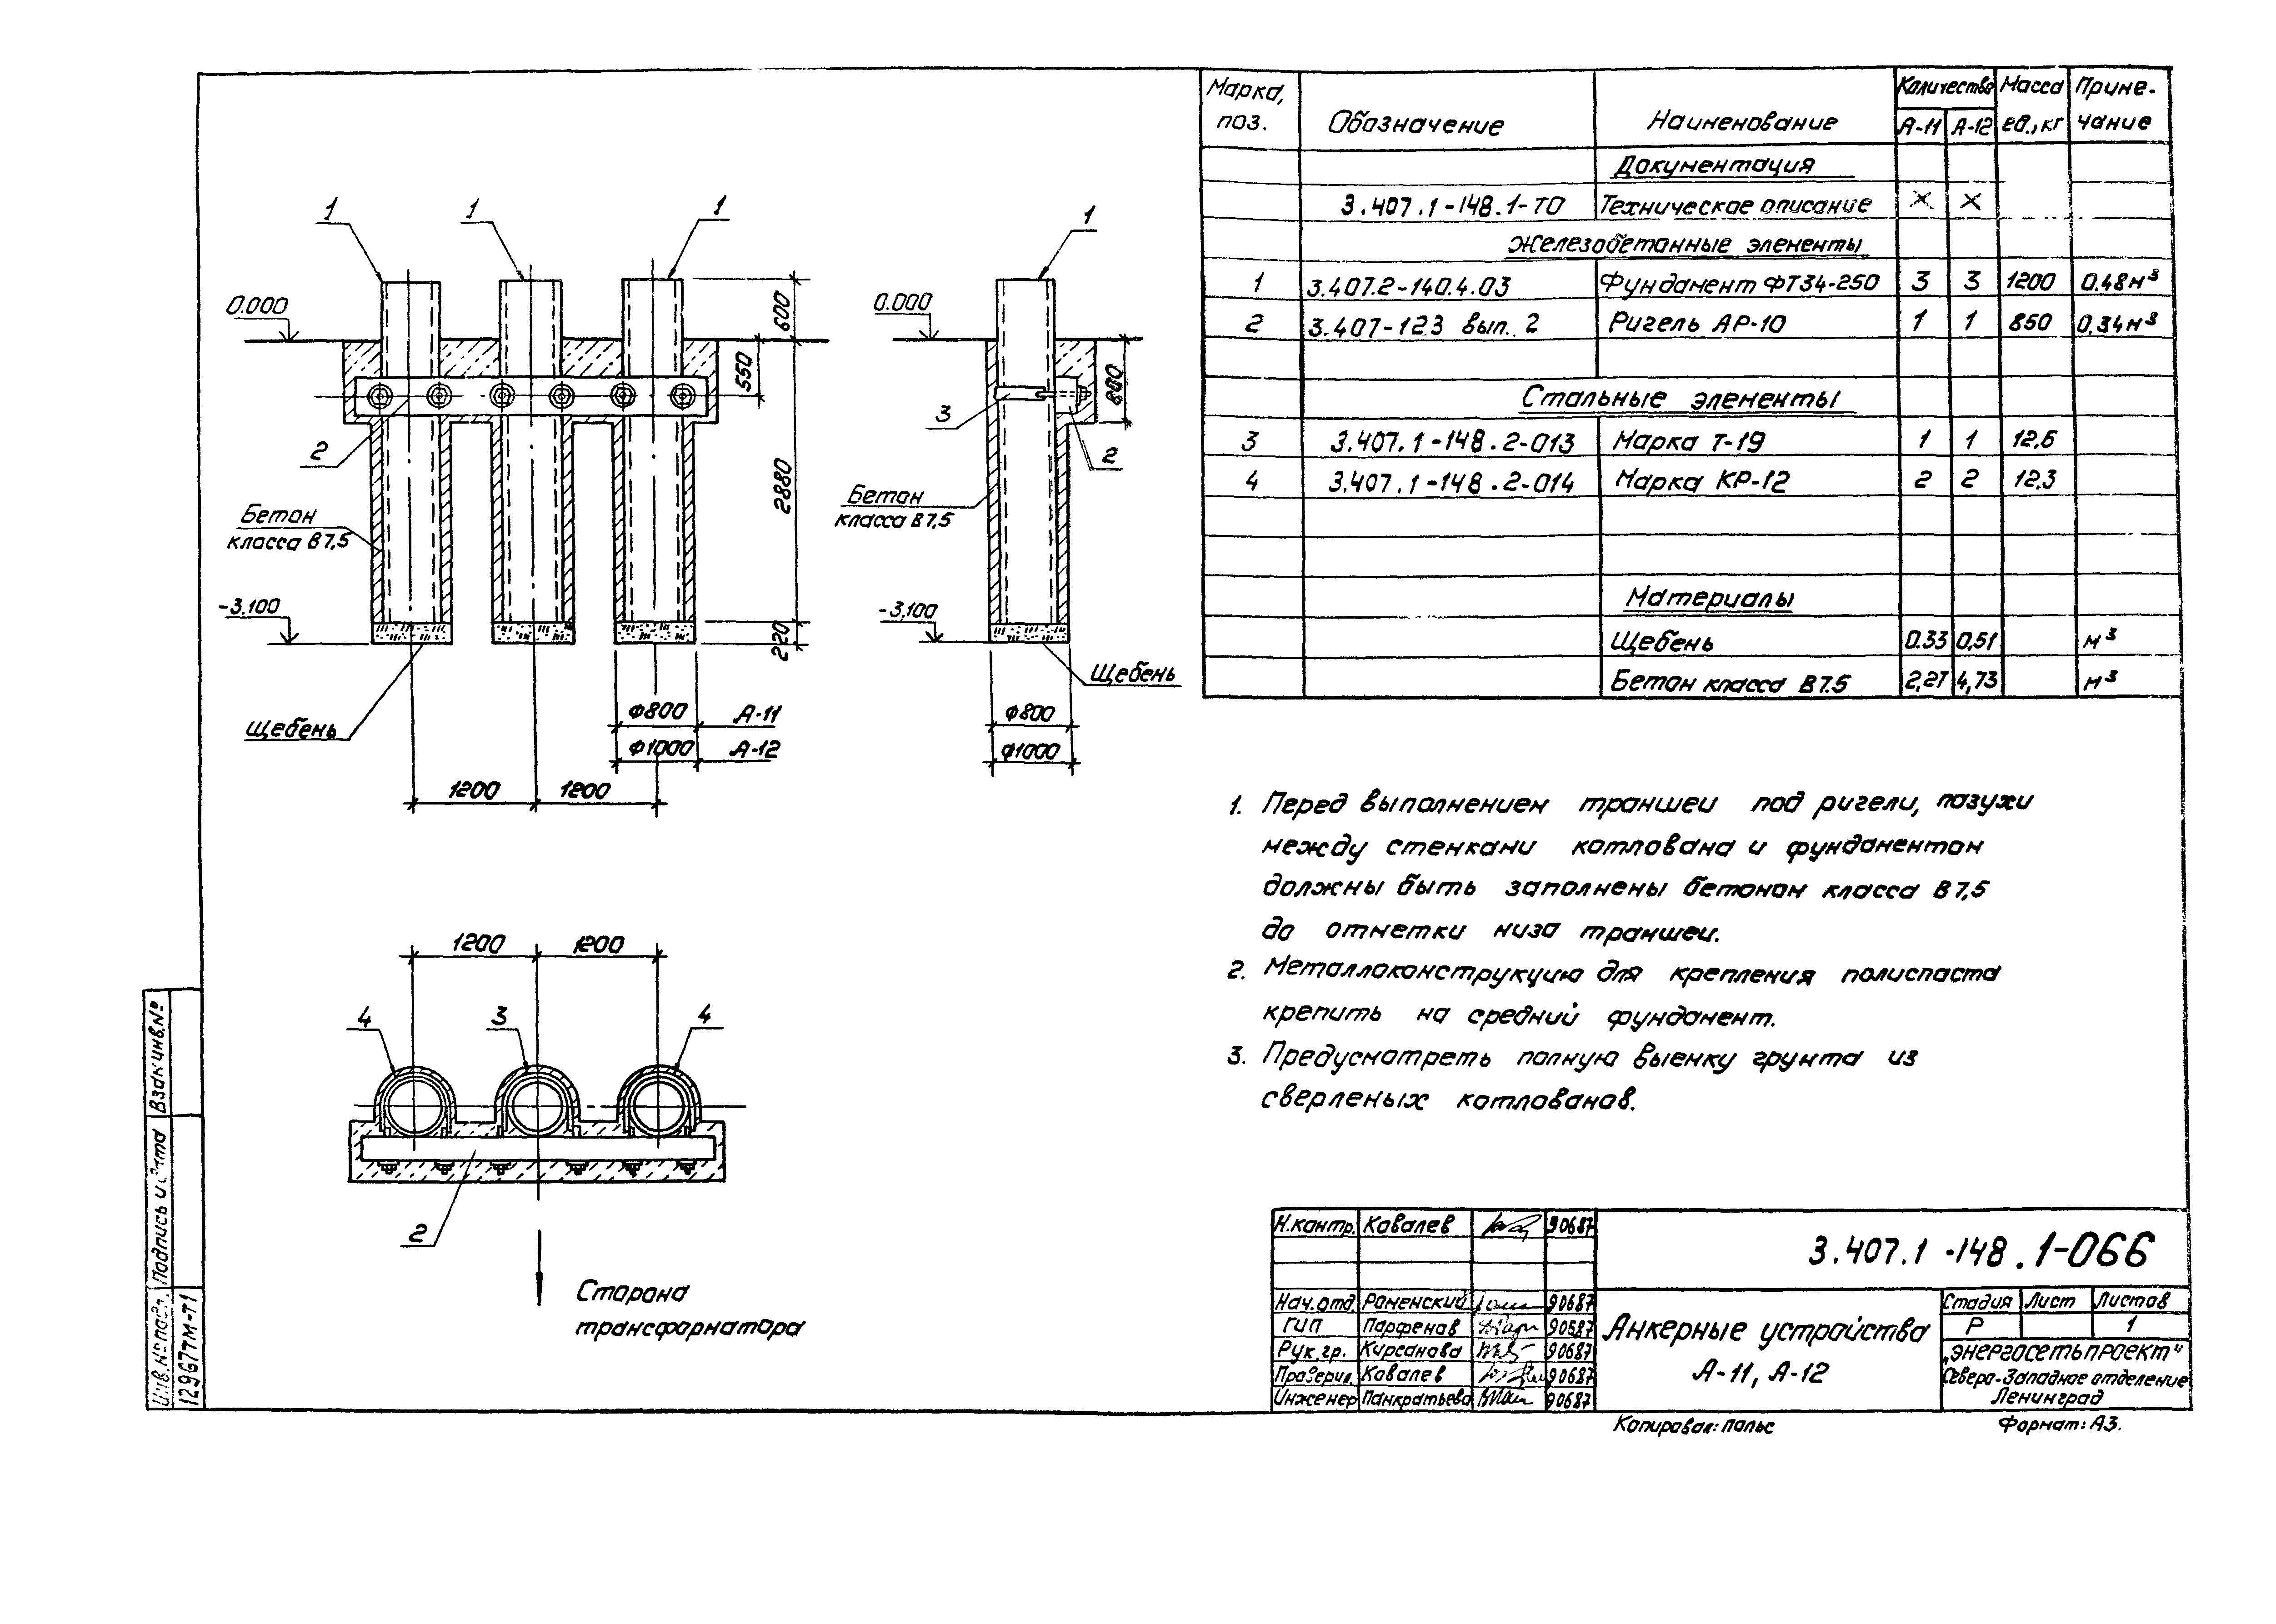 1 1 1
0.000
600
550
2880
220
2
Бетон
класса В7,5
-3,100
Щебень
ф800 А-11
ф1000 А-12
1200 1200
1
0.000
3
880
2
Бетон
класса В7,5
-3,100
Щебень
ф800
ф1000
1200 1200
4 3 4
2
Сторона
трансформатора
Марка, поз. Обозначение Наименование Количество А-11 А-12 Масса ед.,кг Приме-чание
Документация
3.407.1-148.1-ТО Техническое описание × ×
Железобетонные элементы
1 3.407.2-140.4.03 Фундамент ФТ34-250 3 3 1200 0.48м³
2 3.407-123 вып. 2 Ригель АР-10 1 1 850 0,34м³
Стальные элементы
3 3.407.1-148.2-013 Марка Т-19 1 1 12,6
4 3.407.1-148.2-014 Марка КР-12 2 2 12.3
Материалы
Щебень 0.33 0,51 м³
Бетон класса В7.5 2,27 4,73 м³
1. Перед выполнением траншеи под ригели, пазухи
между стенками котлована и фундаментом
должны быть заполнены бетоном класса В7,5
до отметки низа траншеи.
2. Металлоконструкцию для крепления полиспаста
крепить на средний фундамент.
3. Предусмотреть полную выемку грунта из
сверленых котлованов.
Н.контр. Ковалев 90687
Нач.отд. Раменский 90687
ГИП Парфенов 90587
Рук.гр. Кирсанова 90687
Проверил. Ковалев 90687
Инженер Панкратьева 90687
3.407.1-148.1-066
Анкерные устройства
А-11, А-12
Стадия Лист Листов
Р 1
„ЭНЕРГОСЕТЬПРОЕКТ"
Северо-Западное отделение
Ленинград
Копировал: Польс Формат: А3.
Взам.инв.№
Подпись и дата
Инв.№ подл.
12967ТМ-Т1